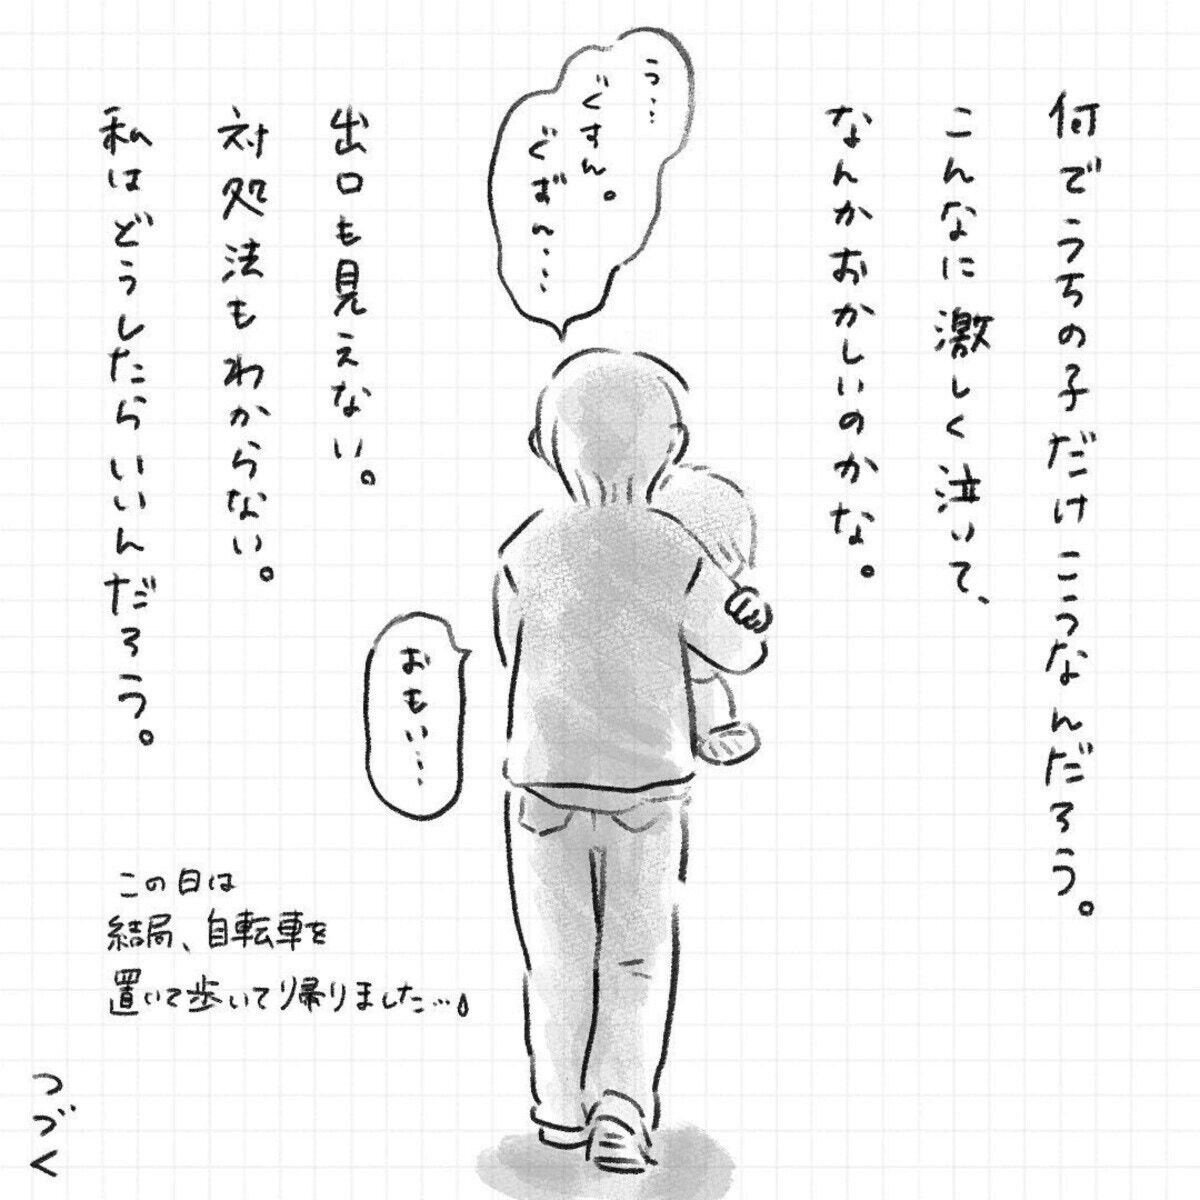 何でうちの子だけこうなんだろう。
こんなに激しく泣いて、
なんかおかしいのかな。
う…
ぐすん。
ぐずん……
出口も見えない。
対処法もわからない。
私はどうしたらいいんだろう。
おもい…
この日は
結局、自転車を
置いて歩いて帰りました…
つづく